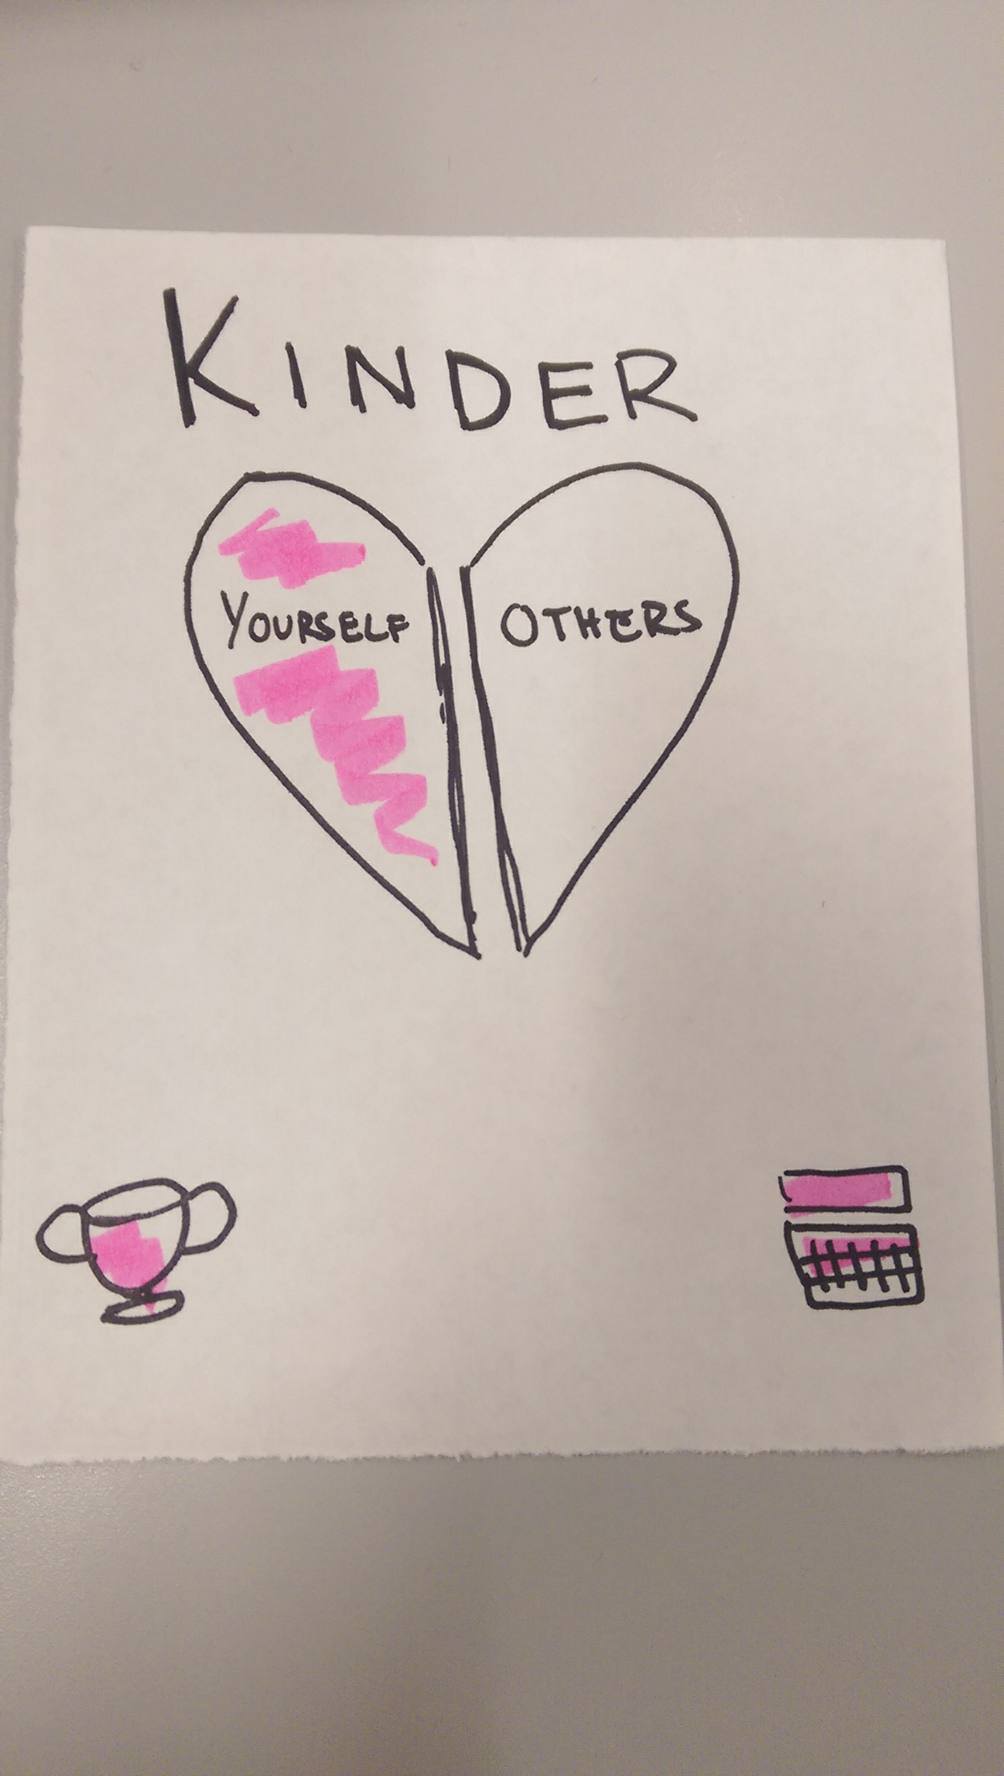 KINDER
YOURSELF
OTHERS